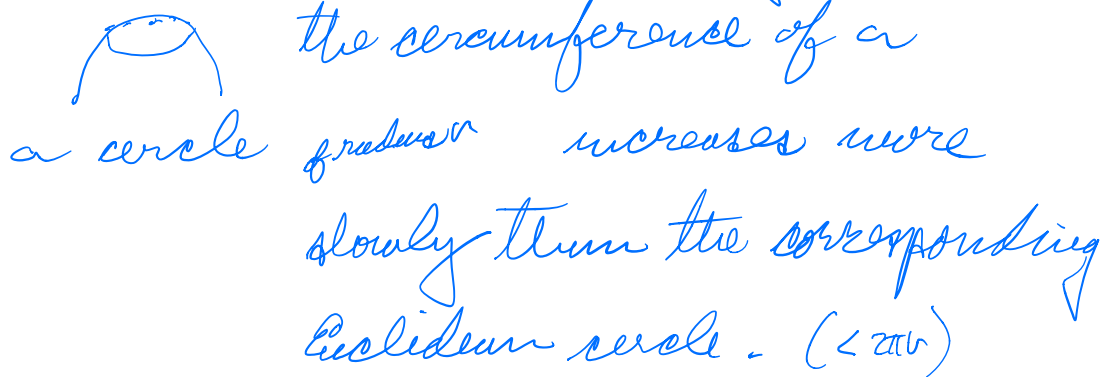 the circumference of a
a circle of radius r increases more
slowly than the corresponding
Euclidean circle. (< 2πr)